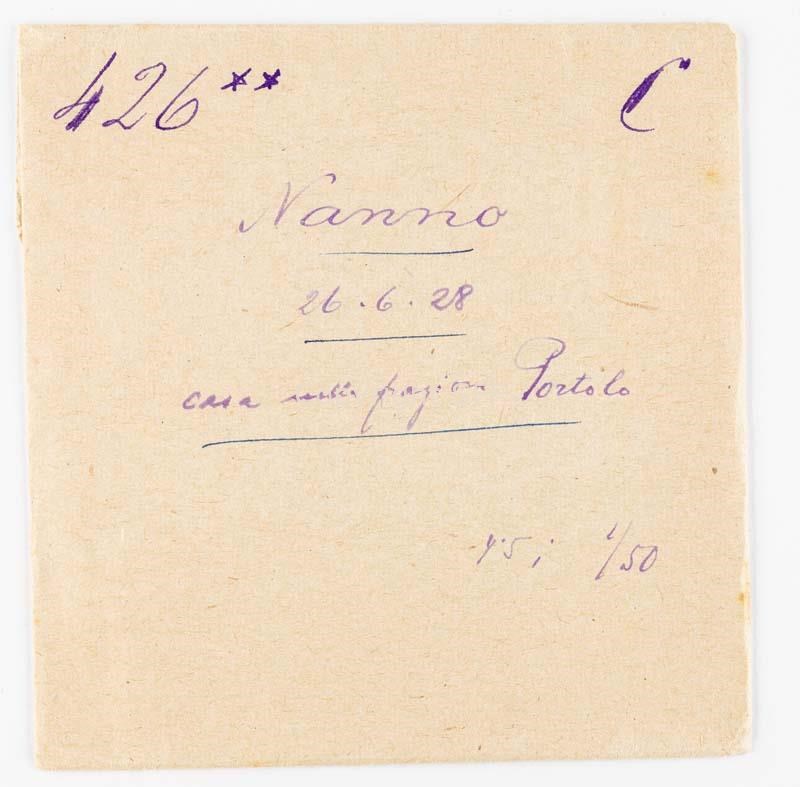 426** C
Nanno
26.6.28
casa nella frazione Portolo
4·5; 1/50